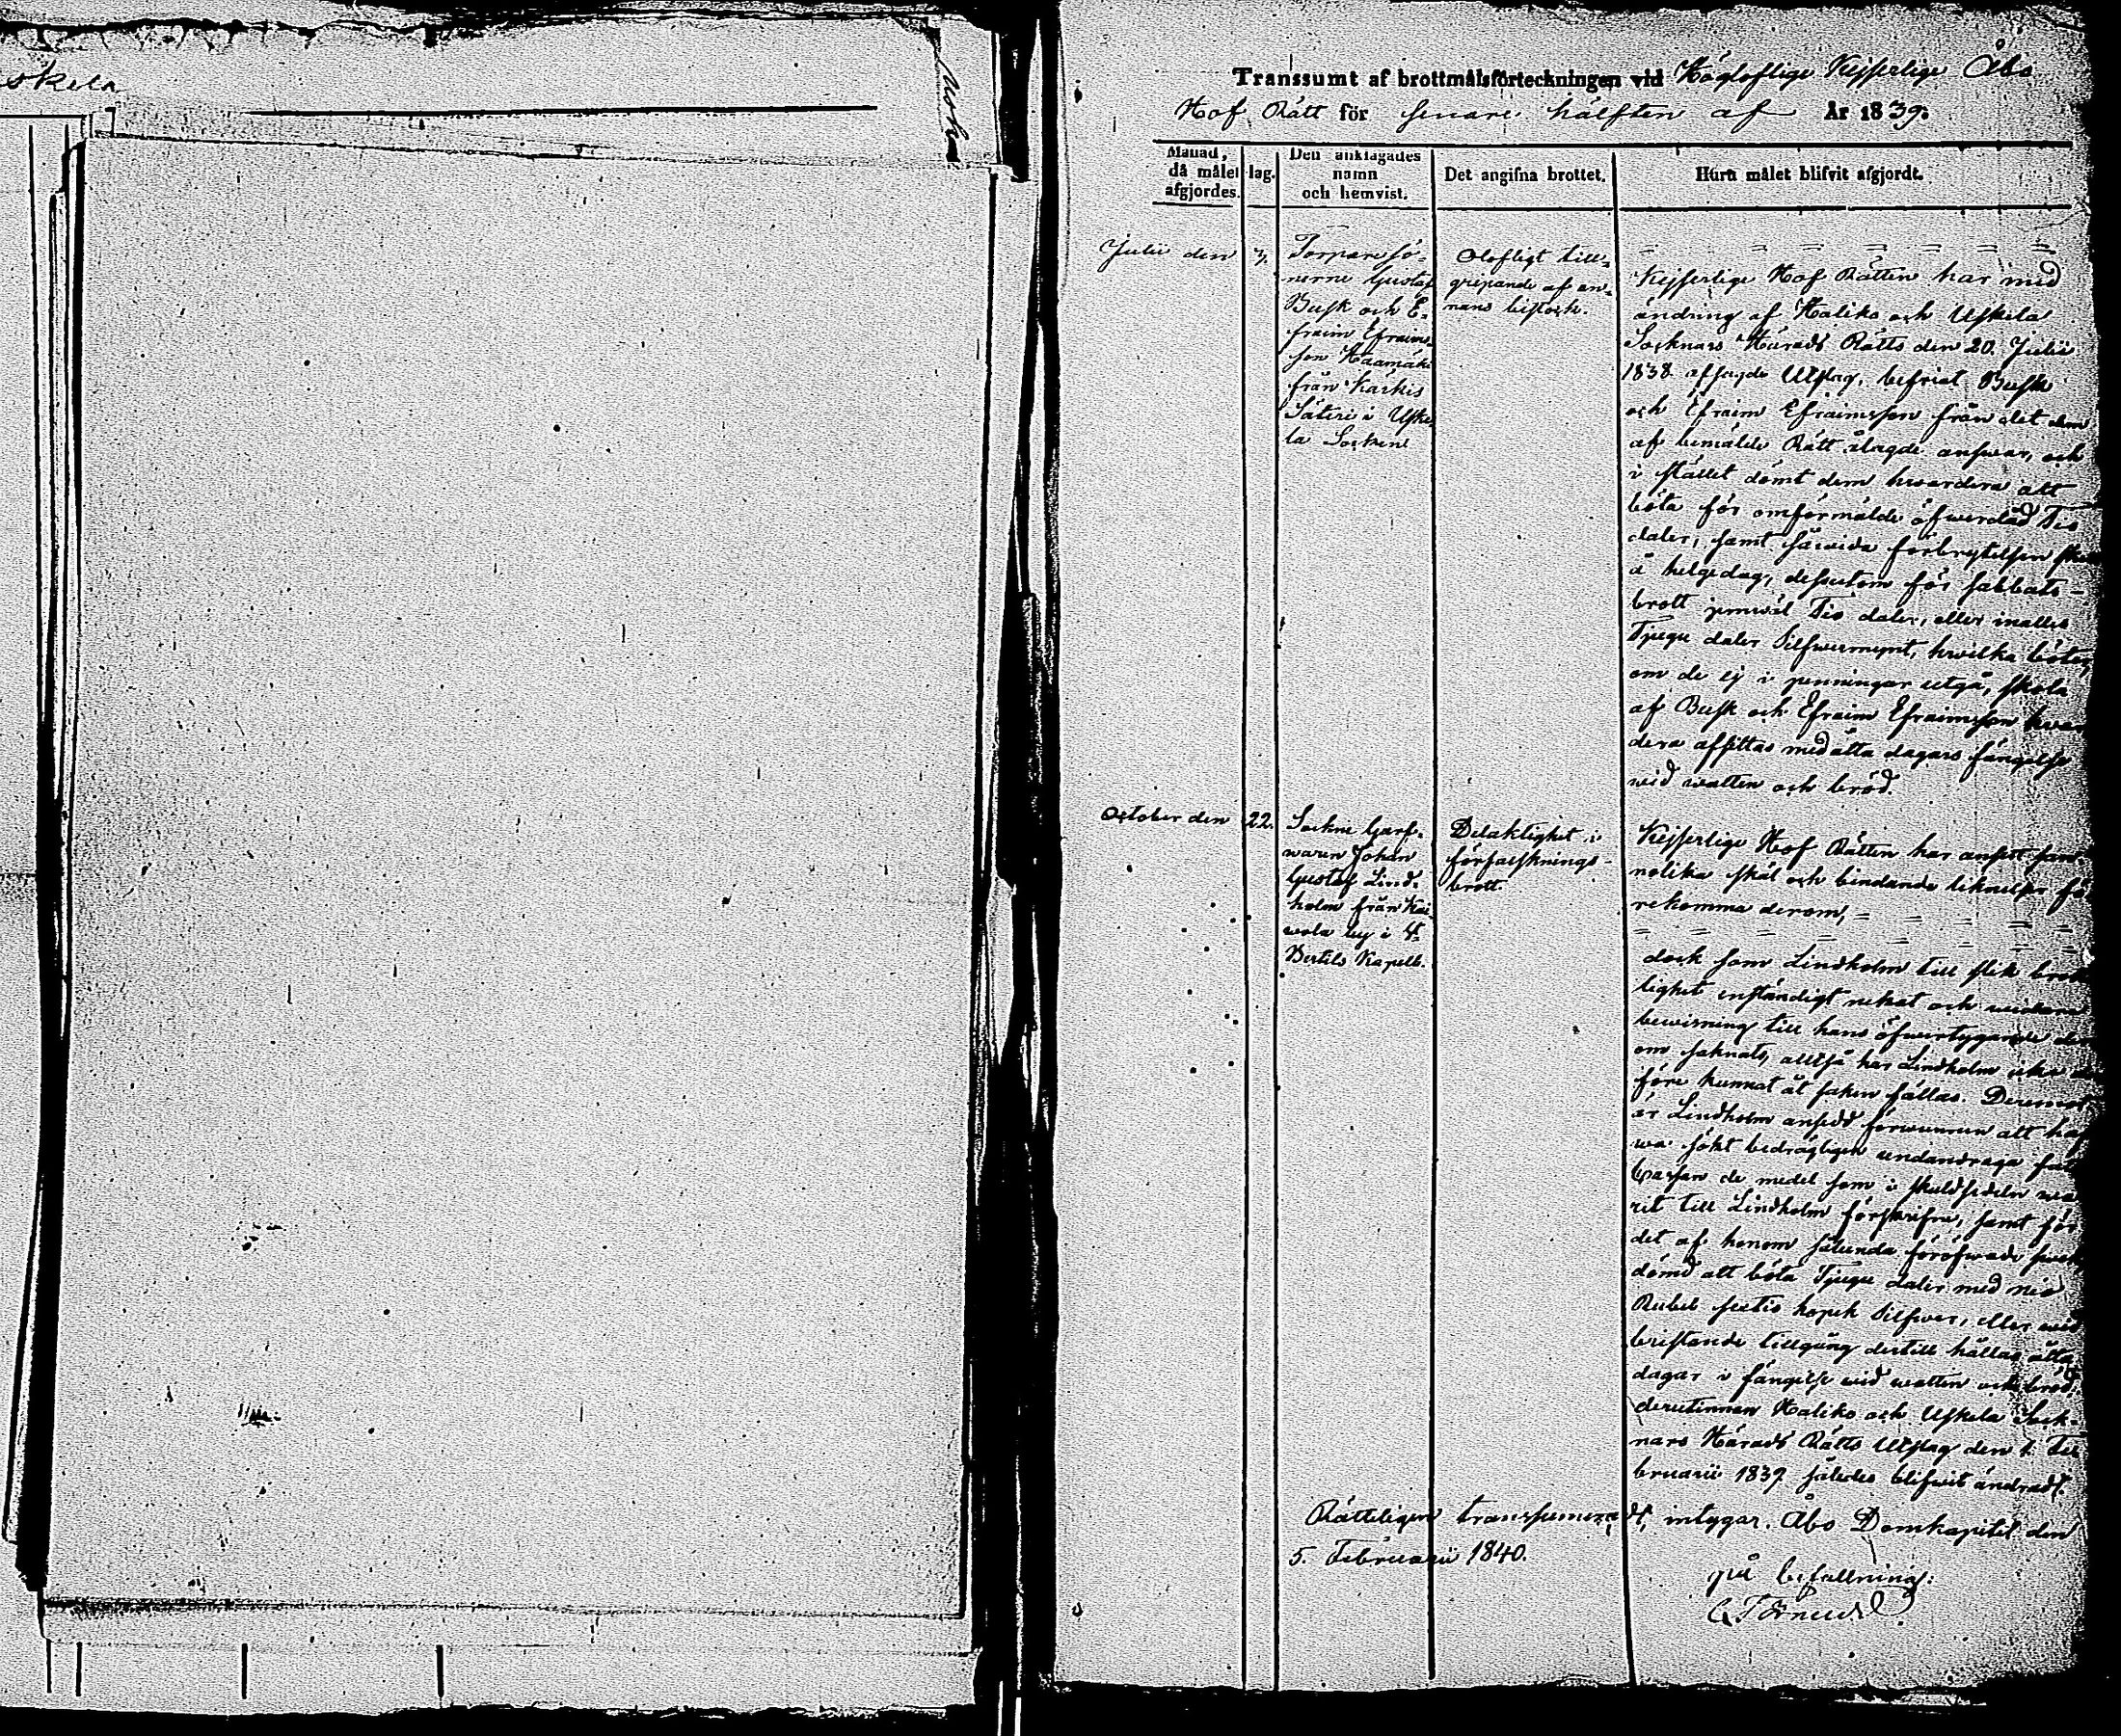 skela
Transsumt af brottmålsförteckningen vid Högloflige Kejserlige Åbo
Hof Rätt för senare hälften af År 1839.
Månad, då målet afgjordes.
Dag.
Den anklagades namn och hemvist.
Det angifna brottet.
Huru målet blifvit afgjordt.
Julii den
Torparesö-
nerne Gustaf
Busk och E-
fraim Efraims-
son Haamäki
från Kärkis
Säteri i Uske-
la Socken
Olofligt till-
gripande af an-
nans bistock.
Kejserlige Hof Rätten har med
ändring af Haliko och Uskela
Socknars Härads Rätts den 20. Julii
1838 afsagde Utslag, befriat Busk
och Efraim Efraimsson från det dem
af bemälde Rätt ålagde answar, och
i stället dömt dem hwardera att
böta för omförmälde öfwerdåd Tio
daler, samt såwida förbrytelsen
å helgedag, dessutom för sabbats-
brott jemwäl Tio daler, eller inalles
Tjugu daler Silfwermynt, hwilka böter,
om de ej i penningar utgå, skola
af Busk och Efraim Efraimsson hwar
dera afsittas med åtta dagars fängelse
wid watten och bröd.
October den 22.
Sockne Garf-
waren Johan
Gustaf Lind-
holm från Kai-
wola by i St.
Bertils Kapell.
Delaktighet i
förfalsknings-
brott.
Kejserlige Hof Rätten har ansett san-
nolika skäl och bindande liknelser fö
rekomma derom,
dock som Lindholm till slik brott
lighet enständigt nekat och widare
bewisning till hans öfwertygande der
om saknats, alltså har Lindholm icke
före kunnat åt saken fällas. Deremot
är Lindholm ansedd förwunnen att haf
wa sökt bedrägligen undandraga
de medel som i skuldsedeln wa
rit till Lindholm förskrifne, samt för
det af honom sålunda föröfwade swek
dömd att böta Tjugu daler med nio
Rubel sextio kopek Silfwer, eller wid
bristande tillgång dertill hållas åtta
dagar i fängelse wid watten och bröd,
derutinnan Haliko och Uskela Sock-
nars Härads Rätts Utslag den 1. Fe
bruarii 1839 således blifwit ändradt.
Rätteligen transsumeradt, intygar. Åbo Domkapitel den
5. Februarii 1840.
på befallning: